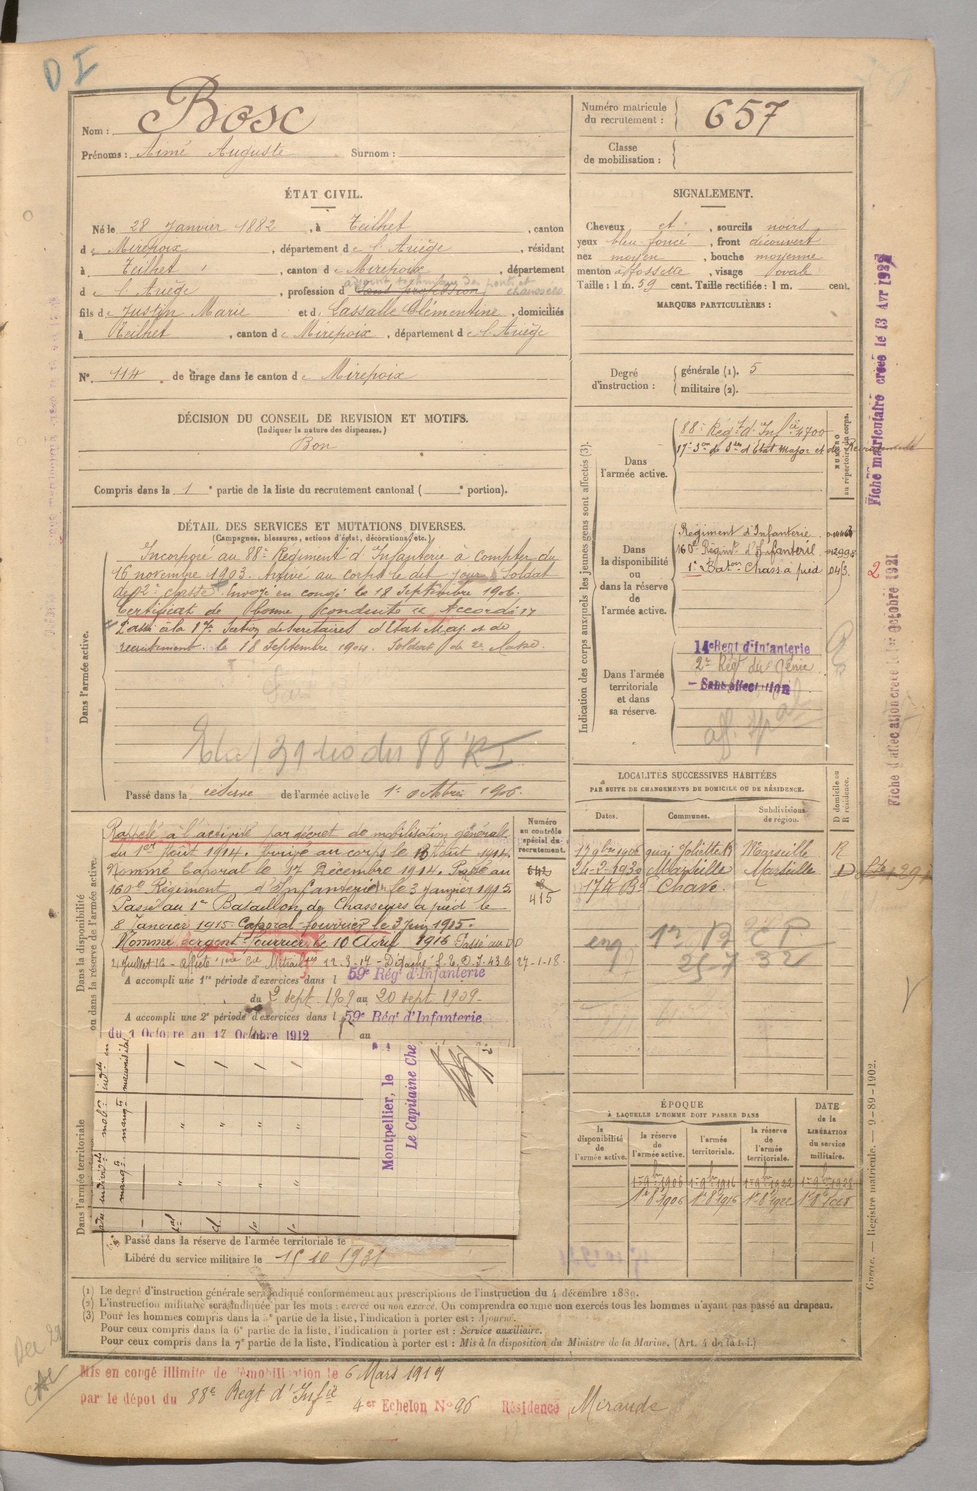 Nom : Bosc
Prénoms : Aimé Auguste Surnom :
ÉTAT CIVIL.
Né le 28 Janvier 1882, à Teilhet, canton
de Mirepoix, département de l'Ariège, résidant
à Teilhet, canton de Mirepoix, département
de l'Ariège, profession d sans profession
adjoint technique des ponts et chaussées
fils de Justin Marie et de Lassalle Clémentine, domiciliés
à Teilhet, canton de Mirepoix, département de l'Ariège
N° 114 de tirage dans le canton de Mirepoix
DÉCISION DU CONSEIL DE REVISION ET MOTIFS.
(Indiquer la nature des dispenses.)
Bon
Compris dans la 1e partie de la liste du recrutement cantonal ( e portion).
DÉTAIL DES SERVICES ET MUTATIONS DIVERSES.
(Campagnes, blessures, actions d'éclat, décorations, etc.)
Dans l'armée active.
Incorporé au 88e Régiment d'Infanterie à compter du
16 novembre 1903. Arrivé au corps le dit jour Soldat
de 2e classe. Envoyé en congé le 18 Septembre 1906.
Certificat de Bonne Conduite Accordé
Passé à la 17e Section de Secrétaires d'Etat Maj. et de
recrutement le 18 Septembre 1904. Soldat de 2e classe.
88 RI
Passé dans la réserve de l'armée active le 1er octobre 1906.
Dans la disponibilité
ou dans la réserve de l'armée active.
Rappelé à l'activité par décret de mobilisation générale
du 1er Août 1914. Arrivé au corps le 13 Août 1914.
Nommé Caporal le 17 Décembre 1914. Passé au
160e Régiment d'Infanterie le 3 janvier 1915
Passé au 1er Bataillon de Chasseurs à pied le
8 Janvier 1915. Caporal-fourrier le 3 juin 1915.
Nommé Sergent-fourrier le 10 Avril 1916 Passé au DD
Numéro
au contrôle
spécial du
recrutement.
415
A accompli une 1re période d'exercices dans l 59e Régt d'Infanterie
du 2 sept. 1909 au 20 sept. 1909.
A accompli une 2e période d'exercices dans l 59e Régt d'Infanterie
du 1 Octobre au 17 Octobre 1912 au
Dans l'armée territoriale
Montpellier, le
Le Capitaine Che
Passé dans la réserve de l'armée territoriale le
Libéré du service militaire le 15 10 1931
Numéro matricule
du recrutement : 657
Classe
de mobilisation :
SIGNALEMENT.
Cheveux et, sourcils noirs
yeux bleu foncé, front découvert
nez moyen, bouche moyenne
menton à fossette, visage ovale
Taille : 1 m. 59 cent. Taille rectifiée : 1 m. cent.
MARQUES PARTICULIÈRES :
Degré
d'instruction :
générale (1). 5
militaire (2).
Indication des corps auxquels les jeunes gens sont affectés (3).
NUMÉRO
au répertoire du corps.
Dans
l'armée active.
88e Régt d'Infie 4700
17e Son de Sres d'Etat Major et de Recrutement
Dans
la disponibilité
ou dans la réserve
de
l'armée active.
Régiment d'Infanterie
160e Régimt d'Infanterie 012995
1er Baton Chass. à pied
Dans l'armée
territoriale
et dans
sa réserve.
14e Régt d'Infanterie
2e Régt du Génie
Sans affectation
LOCALITÉS SUCCESSIVES HABITÉES
PAR SUITE DE CHANGEMENTS DE DOMICILE OU DE RÉSIDENCE.
Dates. Communes. Subdivisions de région. D domicile ou R résidence.
17 9bre 1906 quai Joliette Marseille R
24-2-1930 Marseille Marseille D
174 Bd Chave
25-7-32
ÉPOQUE
À LAQUELLE L'HOMME DOIT PASSER DANS
la disponibilité de l'armée active.
la réserve de l'armée active.
l'armée territoriale.
la réserve de l'armée territoriale.
DATE de la LIBÉRATION du service militaire.
1er 9bre 1906 1er 9bre 1916 1er 9bre 1922 1er 9bre 1928
1er 8bre 1906 1er 8bre 1916 1er 8bre 1922 1er 8bre 1928
(1) Le degré d'instruction générale sera indiqué conformément aux prescriptions de l'instruction du 4 décembre 1889.
(2) L'instruction militaire sera indiquée par les mots : exercé ou non exercé. On comprendra comme non exercés tous les hommes n'ayant pas passé au drapeau.
(3) Pour les hommes compris dans la 5e partie de la liste, l'indication à porter est : Ajourné.
Pour ceux compris dans la 6e partie de la liste, l'indication à porter est : Service auxiliaire.
Pour ceux compris dans la 7e partie de la liste, l'indication à porter est : Mis à la disposition du Ministre de la Marine. (Art. 4 de la loi.)
Mis en congé illimité de démobilisation le 6 Mars 1919
par le dépôt du 88e Regt d'Infie 4er Echelon N° 96 Résidence Mirande
Fiche matriculaire créée le 13 Avr 1937
Fiche d'affectation créée le 1er Octobre 1921
Guerre. — Registre matricule. — 9-89-1902.